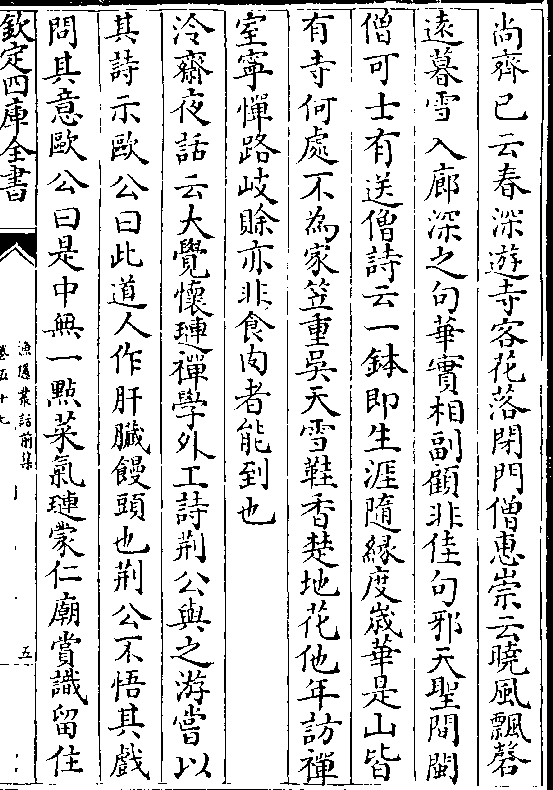 尚齊已云春深遊寺客花落閉門僧惠崇云曉風飄磬
遠暮雪入廊深之句華實相副顧非佳句邪天聖間閩
僧可士有送僧詩云一鉢即生涯隨緣度歲華是山皆
有寺何處不為家笠重吳天雪鞋香楚地花他年訪禪
室寧憚路岐賖亦非食肉者能到也
冷齋夜話云大覺懷璉禪學外工詩荆公與之游嘗以
其詩示歐公曰此道人作肝臟饅頭也荆公不悟其戲
問其意歐公曰是中無一點菜氣璉蒙仁廟賞識留住
欽定四庫全書
漁隱叢話前集
卷五十七
五